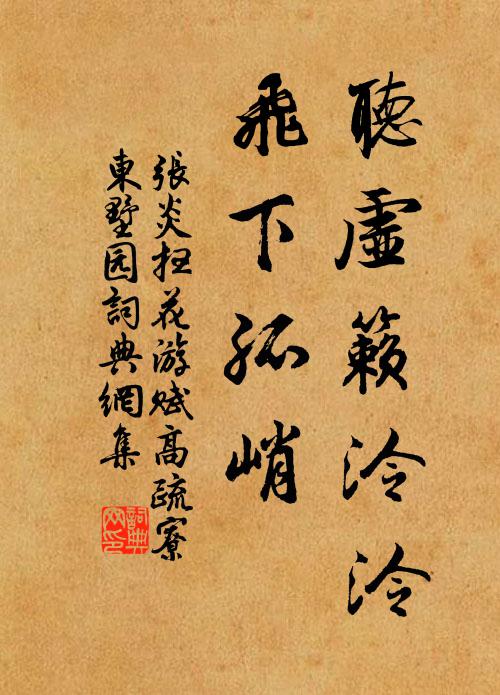 聽虛籟泠泠
飛下孤峭
張炎掃花游賦高疏寮
東墅园詞典網集
詞典网印